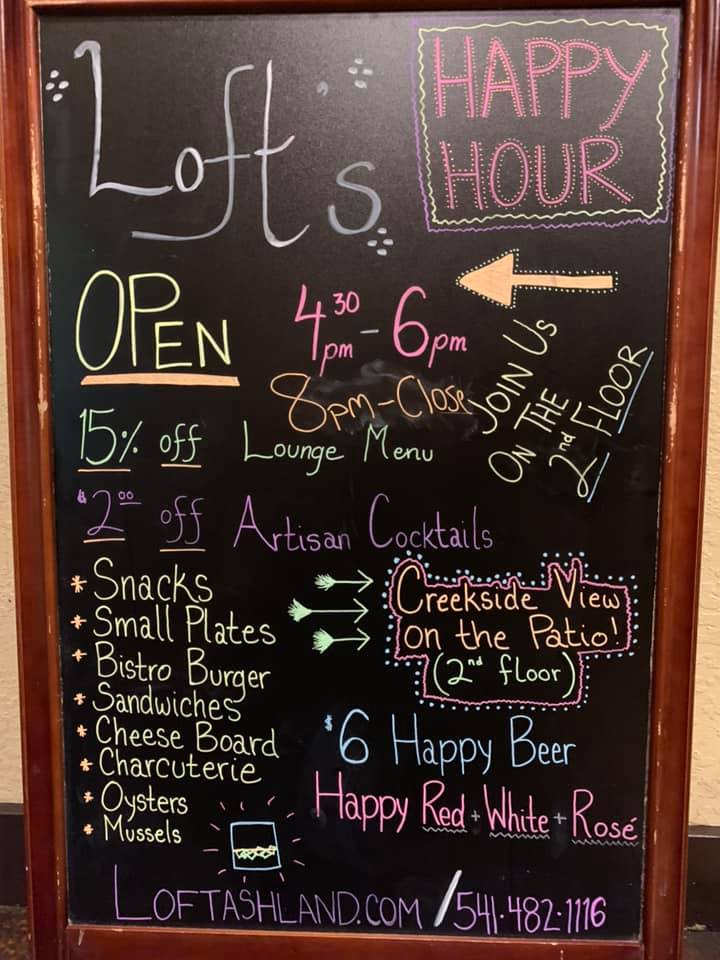 Loft's
HAPPY
HOUR
OPEN
4:30 pm - 6pm
8pm-Close
JOIN US
ON THE
2nd FLOOR
15% off Lounge Menu
$2.00 off Artisan Cocktails
* Snacks
* Small Plates
* Bistro Burger
* Sandwiches
* Cheese Board
* Charcuterie
* Oysters
* Mussels
Creekside View
on the Patio!
(2nd floor)
$6 Happy Beer
Happy Red + White + Rosé
LOFTASHLAND.COM / 541.482.1116